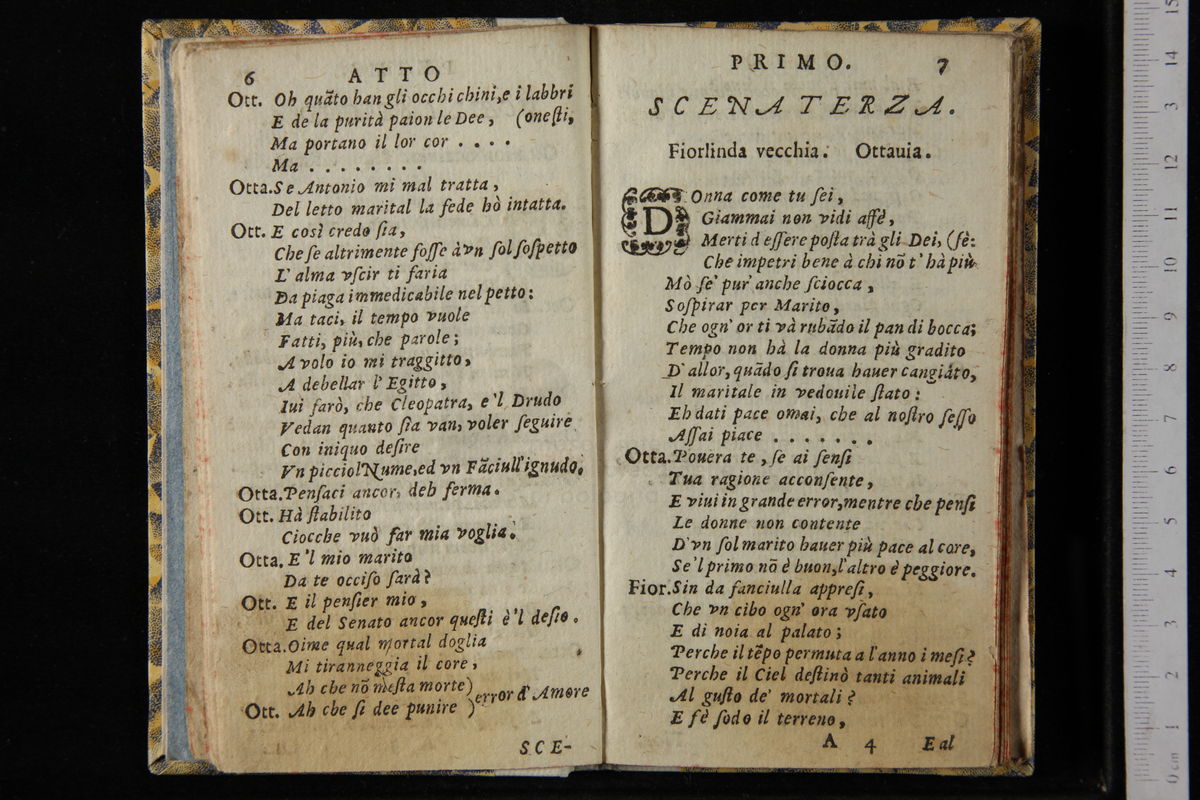 6 ATTO
Ott. Oh quãto han gli occhi chini, e i labbri
E de la purità paion le Dee, (onesti,
Ma portano il lor cor . . . .
Ma . . . . . . . .
Otta. Se Antonio mi mal tratta,
Del letto marital la fede hò intatta.
Ott. E così credo sia,
Che se altrimente fosse à vn sol sospetto
L' alma vscir ti faria
Da piaga immedicabile nel petto:
Ma taci, il tempo vuole
Fatti, più, che parole;
A volo io mi traggitto,
A debellar l' Egitto,
Iui farò, che Cleopatra, e 'l Drudo
Vedan quanto sia van, voler seguire
Con iniquo desire
Vn picciol Nume, ed vn Fãciull' ignudo.
Otta. Pensaci ancor, deh ferma.
Ott. Hà stabilito
Ciocche vuò far mia voglia.
Otta. E 'l mio marito
Da te occiso sarà?
Ott. E il pensier mio,
E del Senato ancor questi è 'l desio.
Otta. Oime qual mortal doglia
Mi tiranneggia il core,
Ah che nõ mesta morte) error d' Amore
Ott. Ah che si dee punire )
SCE-
PRIMO. 7
SCENA TERZA.
Fiorlinda vecchia. Ottauia.
DOnna come tu sei,
Giammai non vidi affè,
Merti d essere posta trà gli Dei, (sè:
Che impetri bene à chi nõ t' hà più
Mò se' pur anche sciocca,
Sospirar per Marito,
Che ogn' or ti và rubãdo il pan di bocca;
Tempo non hà la donna più gradito
D' allor, quãdo si troua hauer cangiato,
Il maritale in vedouile stato:
Eh dati pace omai, che al nostro sesso
Assai piace . . . . . . .
Otta. Pouera te, se ai sensi
Tua ragione acconsente,
E viui in grande error, mentre che pensi
Le donne non contente
D' vn sol marito hauer più pace al core,
Se 'l primo nõ è buon, l' altro è peggiore.
Fior. Sin da fanciulla appresi,
Che vn cibo ogn' ora vsato
E di noia al palato;
Perche il tẽpo permuta a l' anno i mesi?
Perche il Ciel destinò tanti animali
Al gusto de' mortali?
E fè sodo il terreno,
A 4 E al